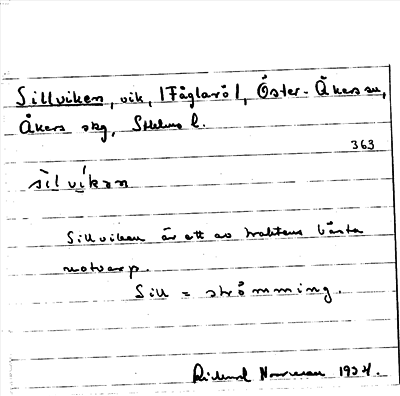 Sillviken, vik, |Fåglarö|, Öster-Åkers sn,
Åkers skg, Sthlms l.
363
sìlvíkan
Sillviken är ett av traktens bästa
notvarp.
Sill = strömming.
Rickard 1924.